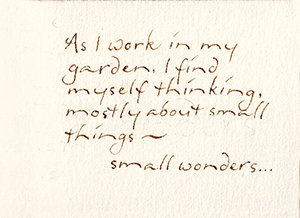 As I work in my
garden, I find
myself thinking,
mostly about small
things ~
small wonders...